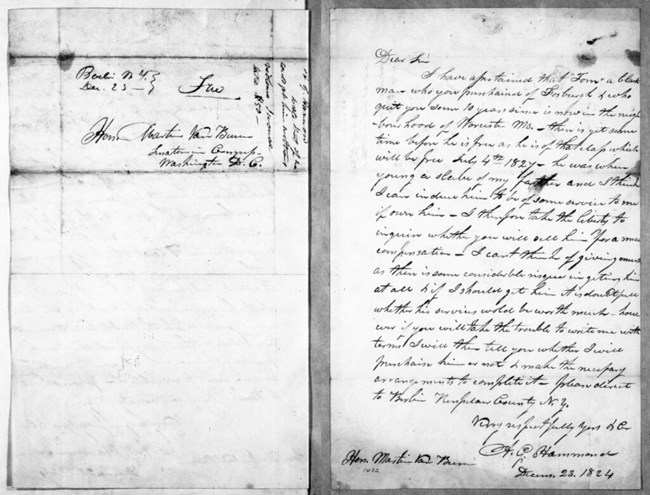 Berlin N.Y.
Dec. 25
Free
Hon. Martin Van Buren
Senator in Congress
Washington D.C.
Dear Sir
I have ascertained that Tom a black
man who you purchased of & who
quit you some 10 years since is now in the neigh
bourhood of Worcester Ms. there is yet some
time before he is free as he is of that class which
will be free July 4th 1827 he was when
young a slave of my father and I think
I can induce him to be of some service to me
if I own him I therefore take the liberty to
inquire whether you will sell him for a small
compensation I cant think of giving much
as there is some considerable risque in getting him
at all & if I should get him it is doubtful
whether his services would be worth much how
ever if you will take the trouble to write me with
terms I will then tell you whether I will
purchase him or not & make the necessary
arrangements to complete it please direct
to Berlin Rensselaer County N.Y.
Very respectfully yours &c
A. G. Hammond
Decem. 23. 1824
Hon. Martin Van Buren